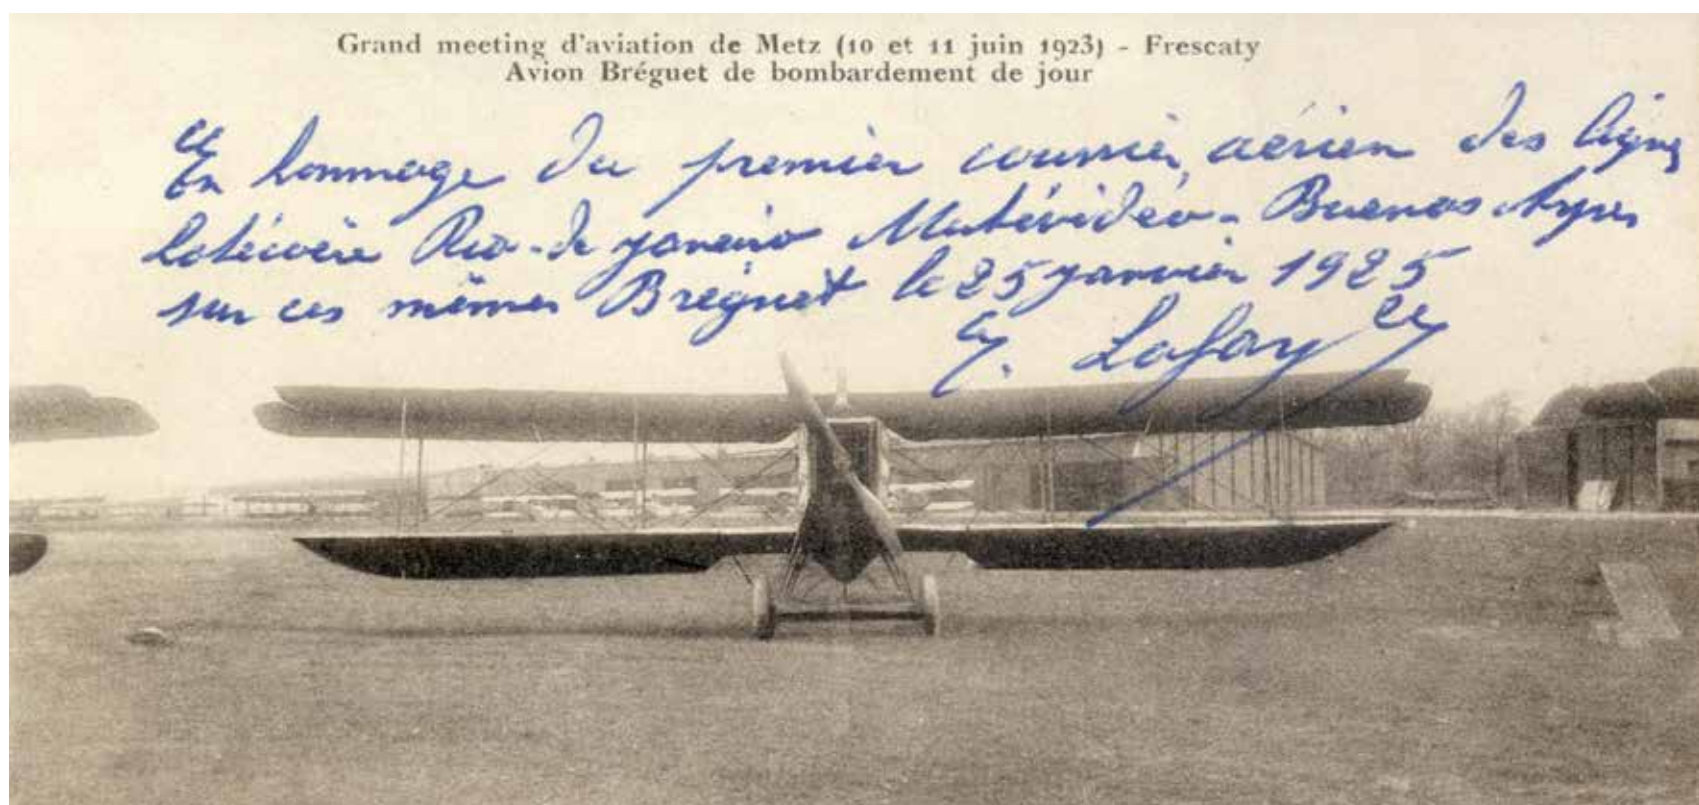 Grand meeting d'aviation de Metz (10 et 11 juin 1923) - Frescaty
Avion Bréguet de bombardement de jour
En hommage du premier courrier aérien des lignes
Latécoère Rio-de janeiro Montévidéo - Buenos Ayres
sur ces mêmes Bréguet le 25 janvier 1925
E. Lafay